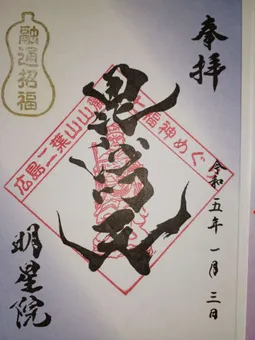 奉拝
令和五年一月三日
毘沙門天
広島二葉山山麓七福神めぐ
融通招福
明星院